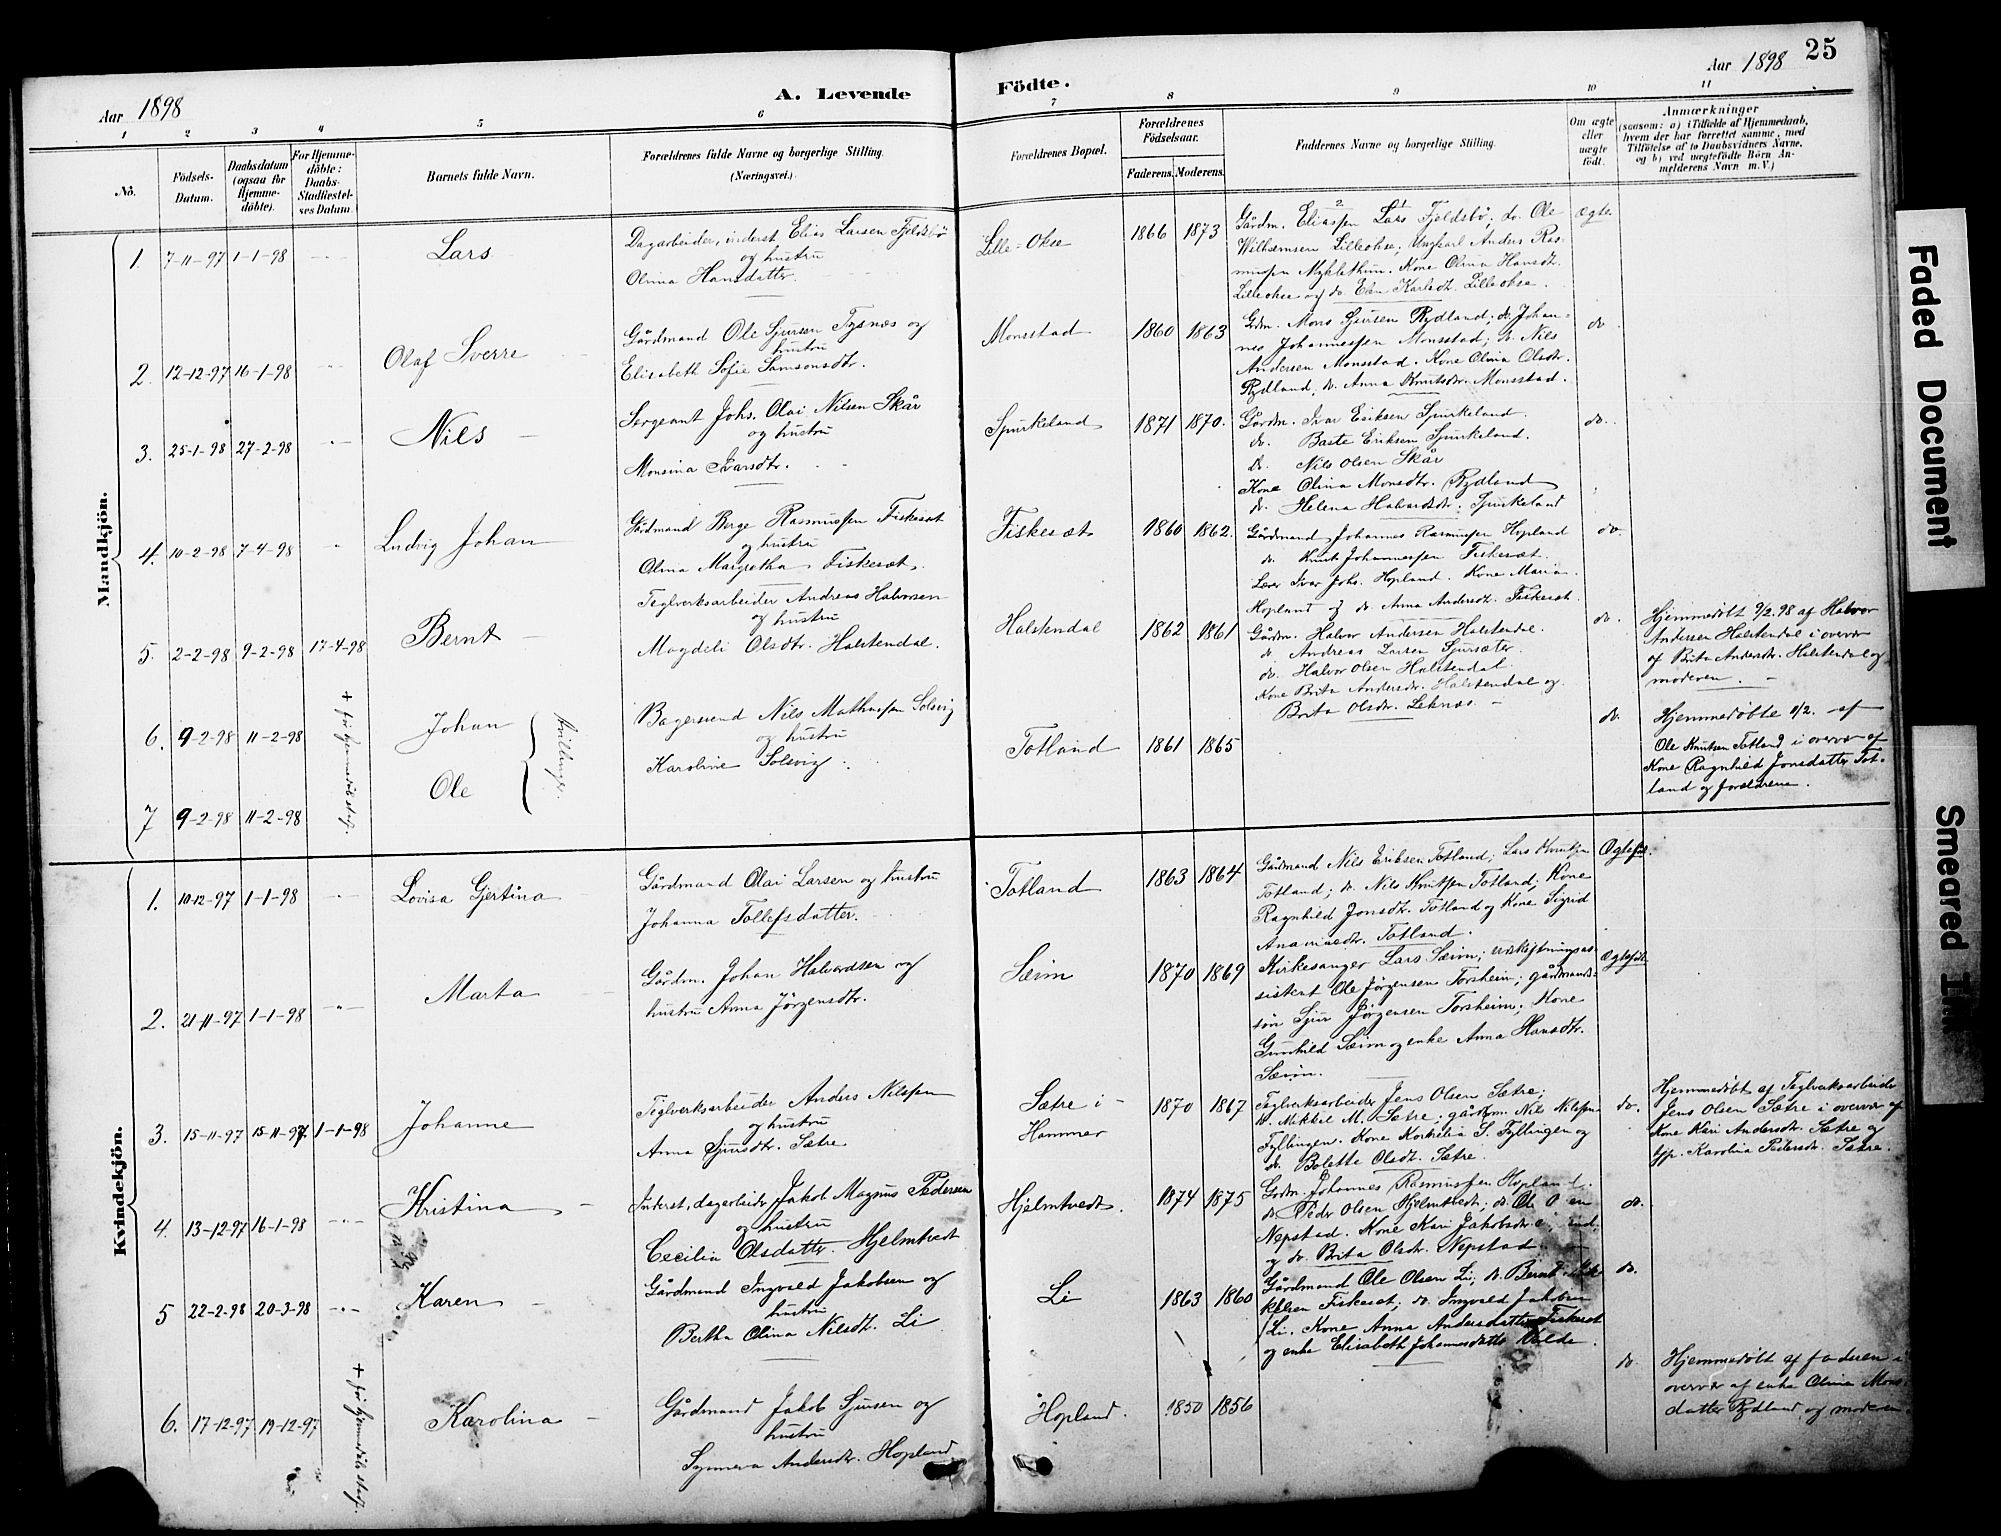 Aar 1898
A. Levende
Födte.
Aar 1898
25
1 2 3 4 5 6 7 8 9 10 11
Nô.
Födsels-
Datum.
Daabsdatum
(ogsaa for
Hjemme-
döbte).
For Hjemme-
döbte:
Daabs-
Stadfæstel-
ses Datum.
Barnets fulde Navn.
Forældrenes fulde Navne og borgerlige Stilling.
(Næringsvei.)
Forældrenes Bopæl.
Forældrenes
Födselsaar.
Faderens. Moderens.
Faddernes Navne og borgerlige Stilling.
Om ægte
eller
uægte
födt.
Anmærkninger
(saasom: a) i Tilfælde af Hjemmedaab,
hvem der har forrettet samme, med
Tilföielse af to Daabsvidners Navne,
og b) ved uægtefödte Börn An-
melderens Navn m.V.)
Mandkjön.
1. 7-11-97 1-1-98 Lars
Dagarbeider, inderst Elias Larsen Fjeldsbö
og hustru
Olina Hansdatter.
Lille-Okse 1866 1873
Gårdm. Eliassen Lars Fjeldsbö; do. Ole
Wilhelmsen Lilleokse, Ungkarl Anders Ras-
mussen Myklethun. Kone Olina Hansdt.
Lilleokse og do. Karlsdt. Lilleokse.
Ægte
2. 12-12-97 16-1-98 Olaf Sverre
Gårdmand Ole Sjursen Tysnes og
hustru
Elisabeth Sofie Samsonsdtr.
Monsstad 1860 1863
Grdm. Mons Sjursen Rydland; do. Johan-
nes Johannessen Monsstad; do. Nils
Andersen Monsstad. Kone Olina Olsdtr.
Rydland, do. Anna Knutsdtr. Monsstad.
do.
3. 25-1-98 27-2-98 Nils
Sergeant Johs. Olai Nilsen Skår
og hustru
Monsina Ivarsdtr.
Spurkeland 1871 1870.
Gårdm. Ivar Eriksen Spurkeland.
do. Baste Eriksen Spurkeland.
do. Nils Olsen Skår
Kone Olina Monsdtr. Rydland
do. Helena Halvardsdtr. Spurkeland
do.
4. 10-2-98 7-4-98 Ludvig Johan
Gårdmand Berge Rasmussen Fiskeset
og hustru
Olina Margretha Fiskeset.
Fiskeset 1860 1862.
Gårdmand Johannes Rasmussen Hopland
do. Knut Johannessen Fiskeset.
Lærer Ivar Johs. Hopland. Kone Maria
Hopland og do. Anna Andersdt. Fiskeset.
do.
5. 2-2-98 9-2-98 17-4-98 Bernt
Teglverksarbeider Andreas Halvorsen
og hustru
Magdeli Olsdtr. Halstendal.
Halstendal 1862 1861
Gårdm. Halvor Andersen Halstendal.
do. Andreas Larsen Sjursæter
do. Halvor Olsen Halstendal
Kone Brita Andersdtr. Halstendal og
Brita Olsdtr. Leknes
do.
Hjemmedöbt 9/2.98 af Halvor
Andersen Halstendal i overvær
af Brita Andersdtr. Halstendal og
moderen.
6. 9-2-98 11-2-98 Johan
7 9-2-98 11-2-98 Ole
Tvillinger
+ för hjemmedåb stadf.
Bagersvend Nils Mathiasen Solsvig
og hustru
Karoline Solsvig
Totland 1861 1865
do.
Hjemmedöbte 11/2. af
Ole Knutsen Totland i overvær af
Kone Ragnhild Jonsdatter Tot-
land og forældrene.
Kvindekjön.
1. 10-12-97 1-1-98 Lovisa Gjertina
Gårdmand Olai Larsen og hustru
Johanna Tollefsdatter.
Totland 1863 1864
Gårdmand Nils Eriksen Totland; Lars Knutsen
Totland; do. Nils Knutsen Totland; Kone
Ragnhild Jonsdtr. Totland og Kone Sigrid
Totland.
Ægtefödt.
2. 21-11-97 1-1-98 Marta
Gårdm. Johan Halvardsen og
hustru Anna Jörgensdtr.
Sæim 1870 1869
Kirkesanger Lars Sæim; udskiftningsas-
sistent Ole Jörgensen Torsheim; gårdmands-
sön Sjur Jörgensen Torsheim; Kone
Gunhild Sæim og enke Anna Hansdtr.
Sæim.
Ægtefödt
3. 15-11-97 15-11-97. 1-1-98 Johanne
Teglverksarbeider Anders Nilssen
og hustru
Anna Sjursdtr. Sætre
Sætre i
Hammer
1870 1867
Teglverksarbeider Jens Olsen Sætre;
do. Mikkel M. Sætre; gårdm. Nils Nilssen
Fyllingen. Kone Kornelia S. Fyllingen og
do. Bolette Olsdt. Sætre.
do.
Hjemmedöbt af Teglverksarbeider
Jens Olsen Sætre i overvær af
Kone Kari Andersdtr. Sætre og
Karolina Pedersdtr. Sætre.
4. 13-12-97 16-1-98 Kristina
Inderst, dagarbeider Jakob Magnus Pedersen
og hustru
Cecilia Olsdatter Hjelmtvedt
Hjelmtvedt. 1874 1875
Grdm. Johannes Rasmussen Hopland.
do. Peder Olsen Hjelmtvedt; do. Ole
Nepstad. Kone Kari Jakobsdtr
og do. Brita Olsdtr. Nepstad
do.
5 22-2-98 20-3-98 Karen
Gårdmand Ingvald Jakobsen og
hustru
Bertha Olina Nilsdt. Li
Li 1863 1860
Gårdmand Ole Olsen Li; do. Bernt Mik-
kelsen Fiskeset; do. Ingvald Jakobsen
Li. Kone Anna Andersdatter Fiskeset
og enke Elisabeth Johannesdatter
do.
6. 17-12-97 19-12-97 Karolina
+ för hjemmedåb stadf.
Gårdmand Jakob Sjursen og
hustru
Synneva Andersdtr. Hopland
Hopland. 1850 1856
do.
Hjemmedöbt af faderen i
overvær af enke Olina Mons-
datter Rydland og moderen.
Faded Document
Smeared Ink